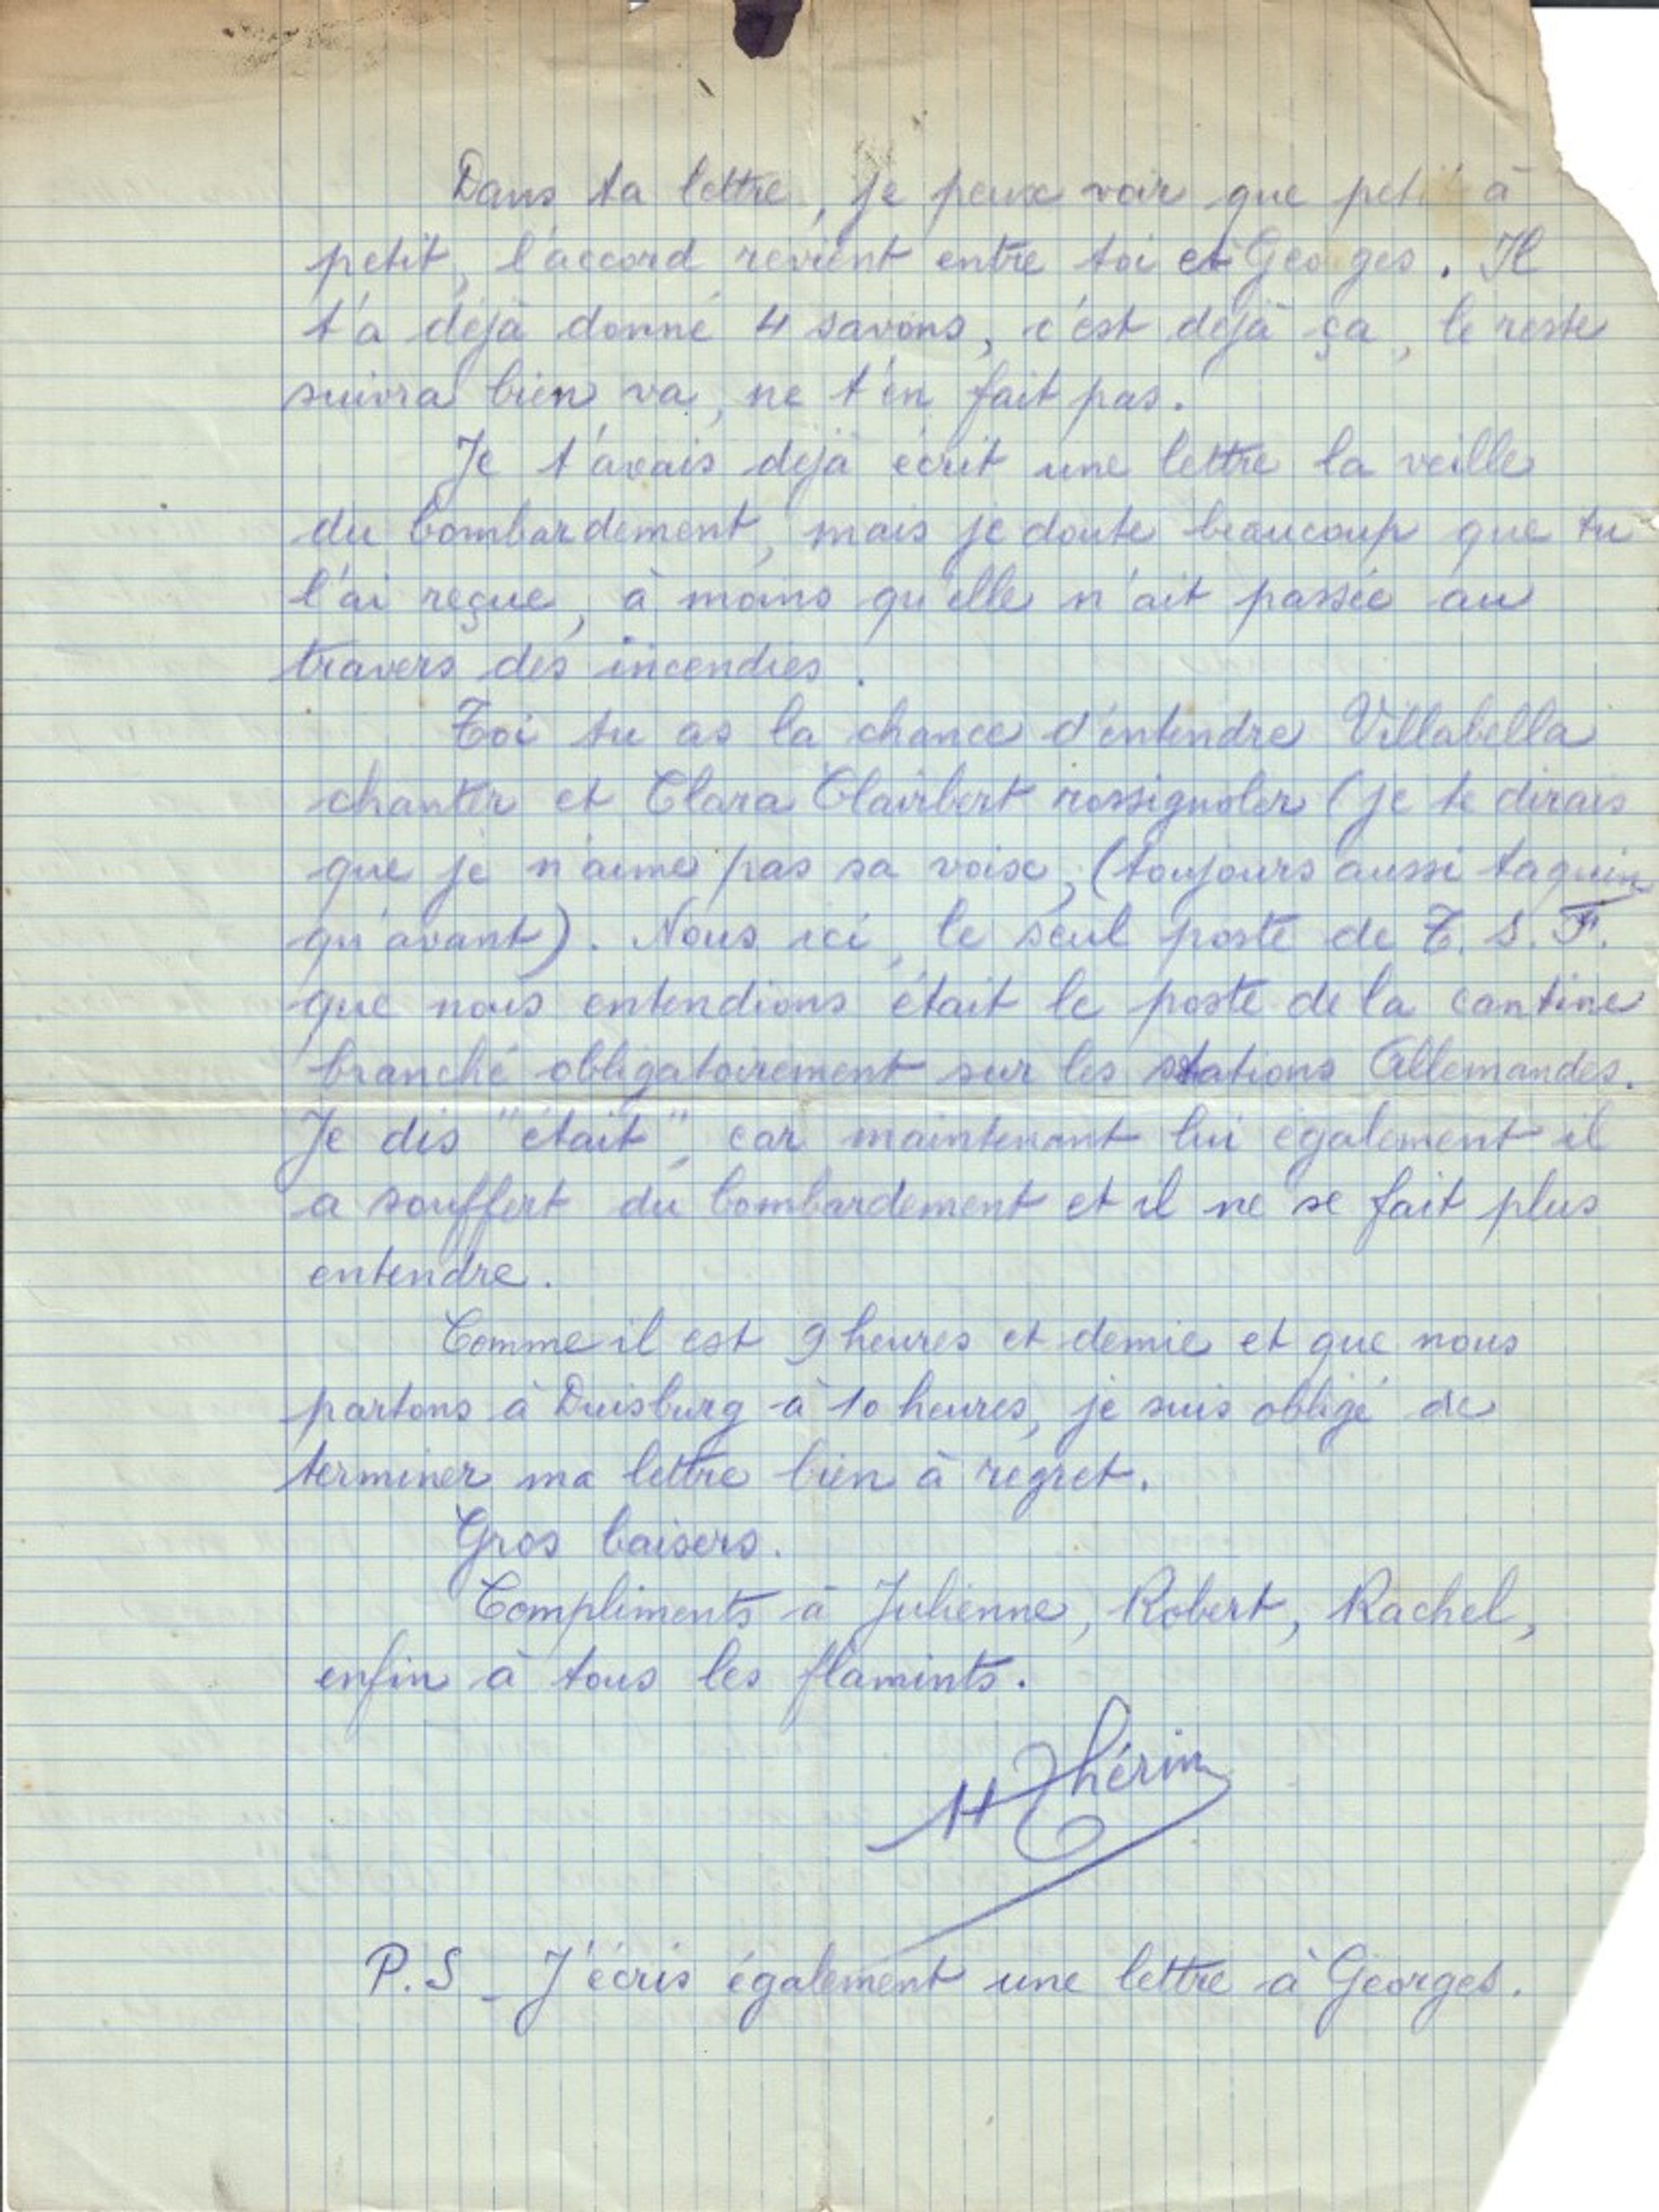 Dans ta lettre, je peux voir que petit à
petit, l'accord revient entre toi et Georges. Il
t'a déjà donné 4 savons, c'est déjà ça, le reste
suivra bien va, ne t'en fait pas.
Je t'avais déjà écrit une lettre la veille
du bombardement, mais je doute beaucoup que tu
l'ai reçue, à moins qu'elle n'ait passée au
travers des incendies.
Toi tu as la chance d'entendre Villabella
chanter et Clara Clairbert rossignoler (je te dirais
que je n'aime pas sa voix, (toujours aussi taquin
qu'avant). Nous ici, le seul poste de T.S.F.
que nous entendions était le poste de la cantine
branché obligatoirement sur les stations Allemandes.
Je dis "était", car maintenant lui également il
a souffert du bombardement et il ne se fait plus
entendre.
Comme il est 9 heures et demie et que nous
partons à Duisburg à 10 heures, je suis obligé de
terminer ma lettre bien à regret.
Gros baisers.
Compliments à Julienne, Robert, Rachel,
enfin à tous les flamints.
H Thérin
P.S - J'écris également une lettre à Georges.